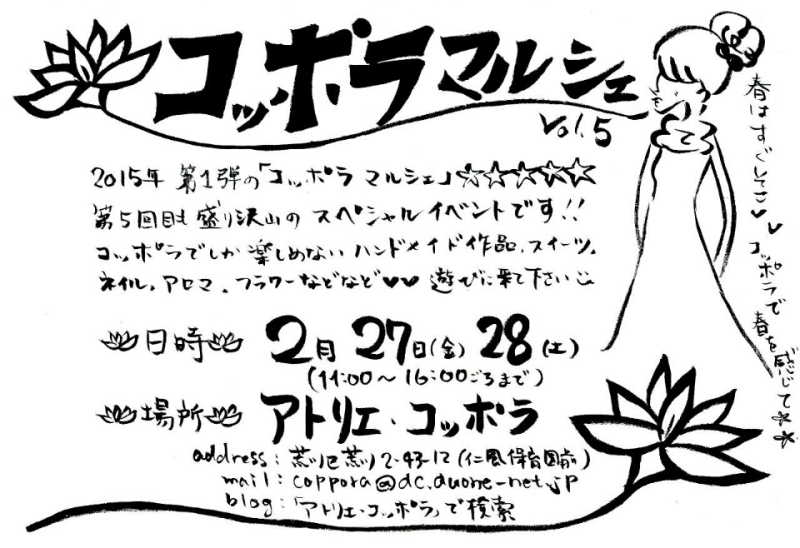 コッポラ マルシェ
Vol.5
2015年 第1弾の「コッポラ マルシェ」☆☆☆☆☆
第5回目も盛り沢山のスペシャルイベントです!!
コッポラでしか楽しめないハンドメイド作品、スイーツ、
ネイル、アロマ、フラワーなどなど♥♥ 遊びに来て下さい
日時 2月27日(金) 28(土)
(11:00〜16:00ごろまで)
場所 アトリエ・コッポラ
address: 荒川区荒川2-43-12(仁風保育園前)
mail: coppora@dc.duone-net.jp
blog:「アトリエ・コッポラ」で検索
春はすぐそこ♥♥
コッポラで
春を感じて☆☆